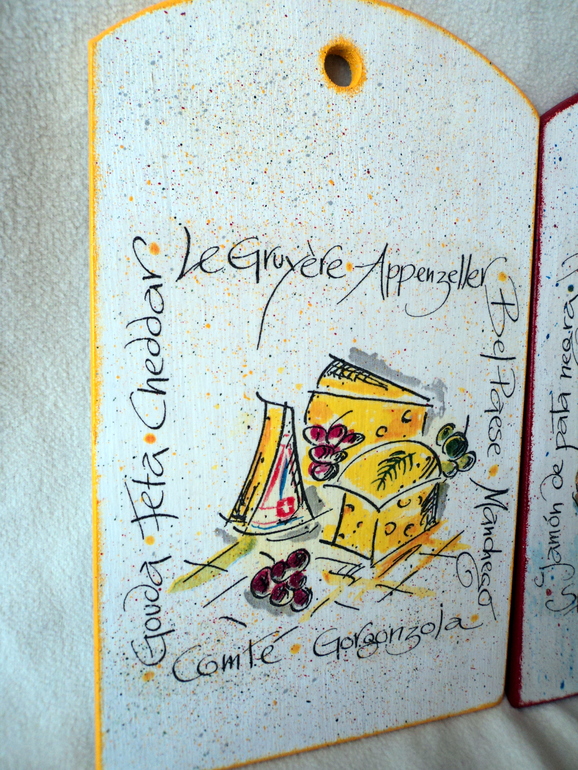 Le Gruyère · Appenzeller
Bel Paese · Manchego
Comté · Gorgonzola
Gouda · Feta · Cheddar
Jamón de pata negra